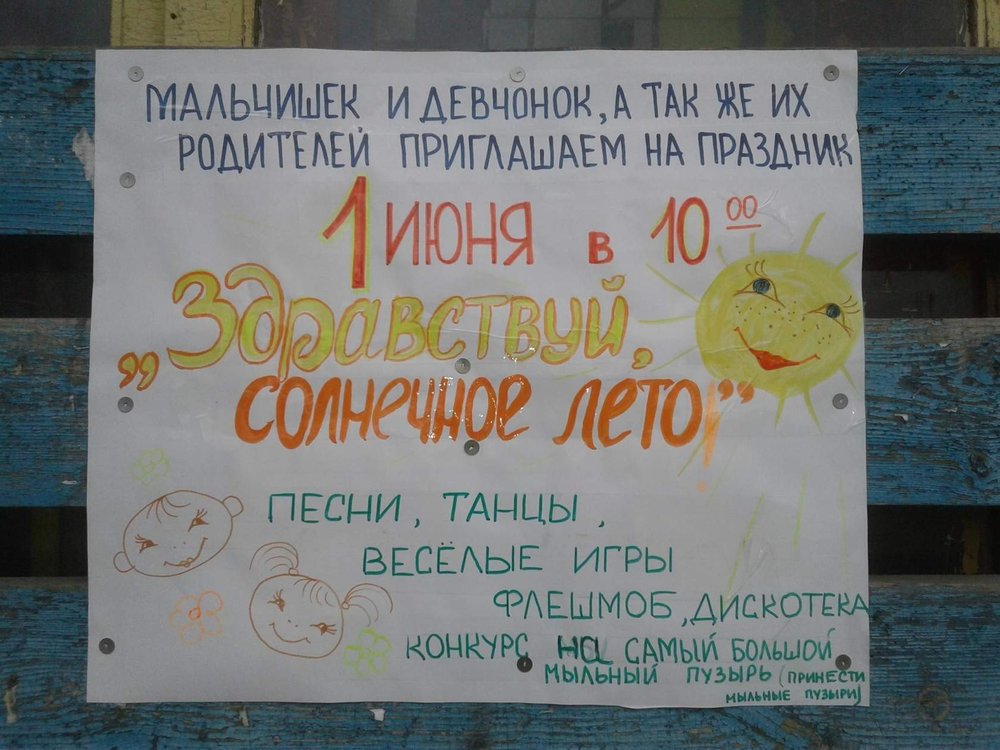 МАЛЬЧИШЕК И ДЕВЧОНОК, А ТАК ЖЕ ИХ
РОДИТЕЛЕЙ ПРИГЛАШАЕМ НА ПРАЗДНИК
1 ИЮНЯ В 10 00
„Здравствуй,
СОЛНЕЧНОЕ ЛЕТО!"
ПЕСНИ, ТАНЦЫ,
ВЕСЁЛЫЕ ИГРЫ
ФЛЕШМОБ, ДИСКОТЕКА
КОНКУРС НА САМЫЙ БОЛЬШОЙ
МЫЛЬНЫЙ ПУЗЫРЬ (ПРИНЕСТИ
МЫЛЬНЫЕ ПУЗЫРИ)